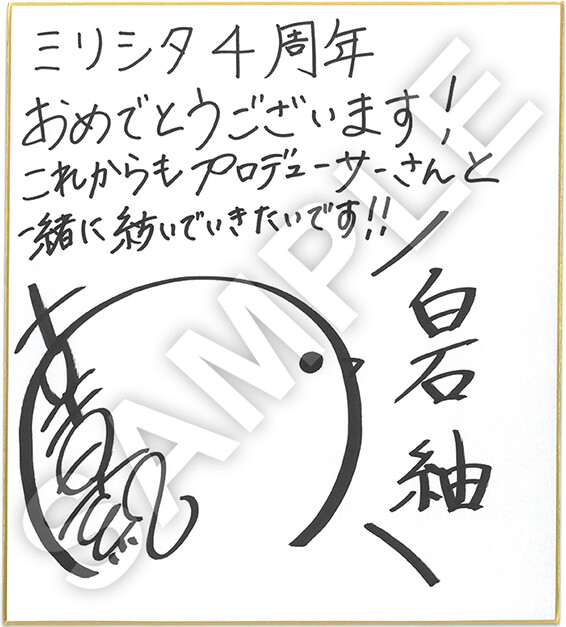 ミリシタ4周年
おめでとうございます!
これからもプロデューサーさんと
一緒に紡いでいきたいです!!
白石 紬
SAMPLE